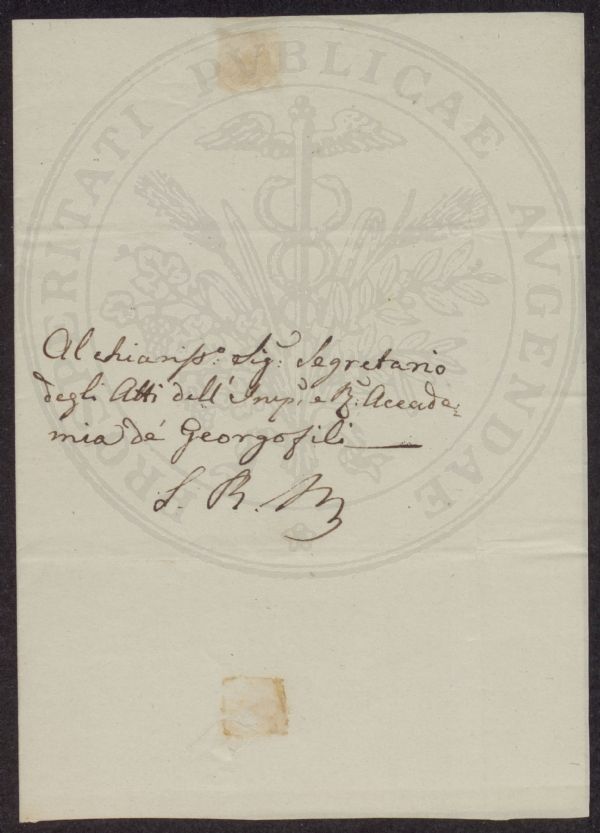 PROSPERITATI PVBLICAE AVGENDAE
Al chiariss.º Sig.ʳ Segretario
degli Atti dell' Imp.ˡ e R.ˡ Accade=
mia de' Georgofili
S. R. M